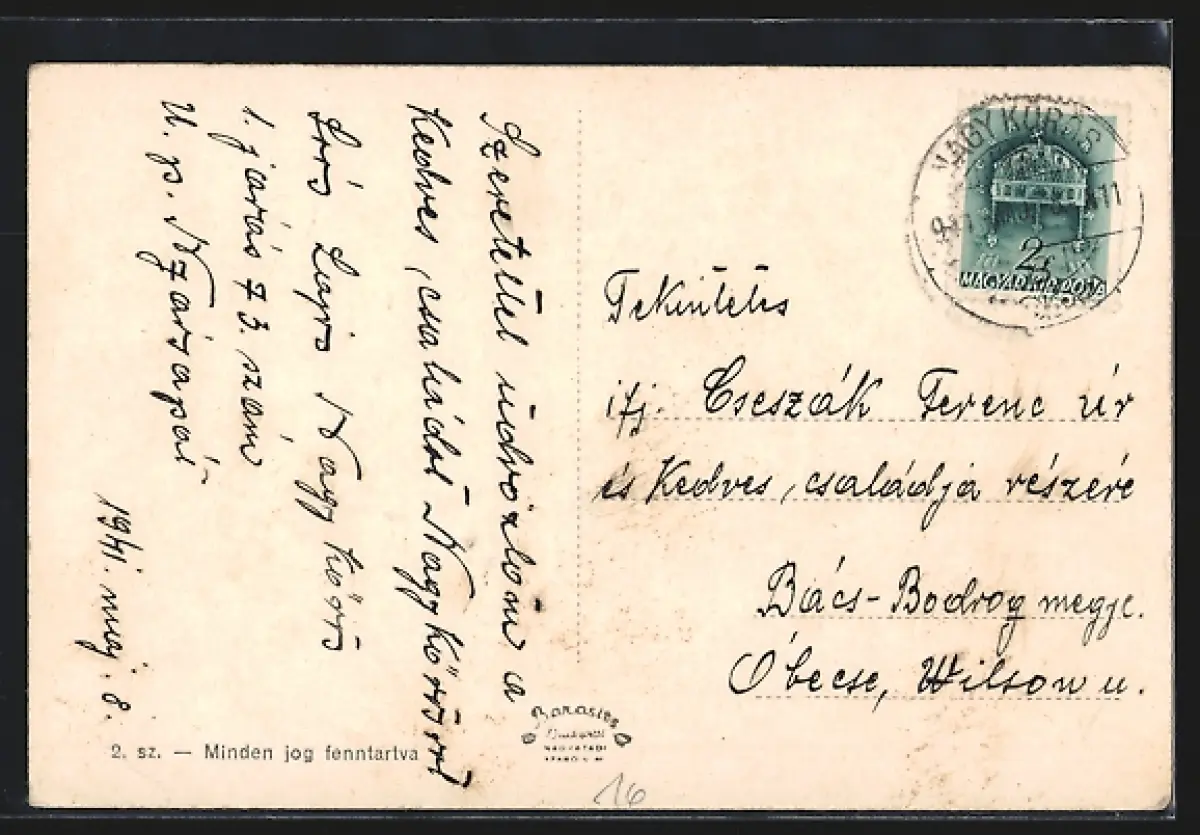 Szeretettel üdvözlöm a
Kedves családot Nagykőrösről
Nagykőrös
1. járás 73. szám
U. p. Nyársapát
1941. máj. 8.
2. sz. — Minden jog fenntartva
Barasits
NAGYATÁDI
16
NAGYKŐRÖS
2f
MAGYAR KIR. POSTA
Tekintetes
ifj. Cseszák Ferenc úr
és Kedves családja részére
Bács-Bodrog megye.
Óbecse, Wilson u.